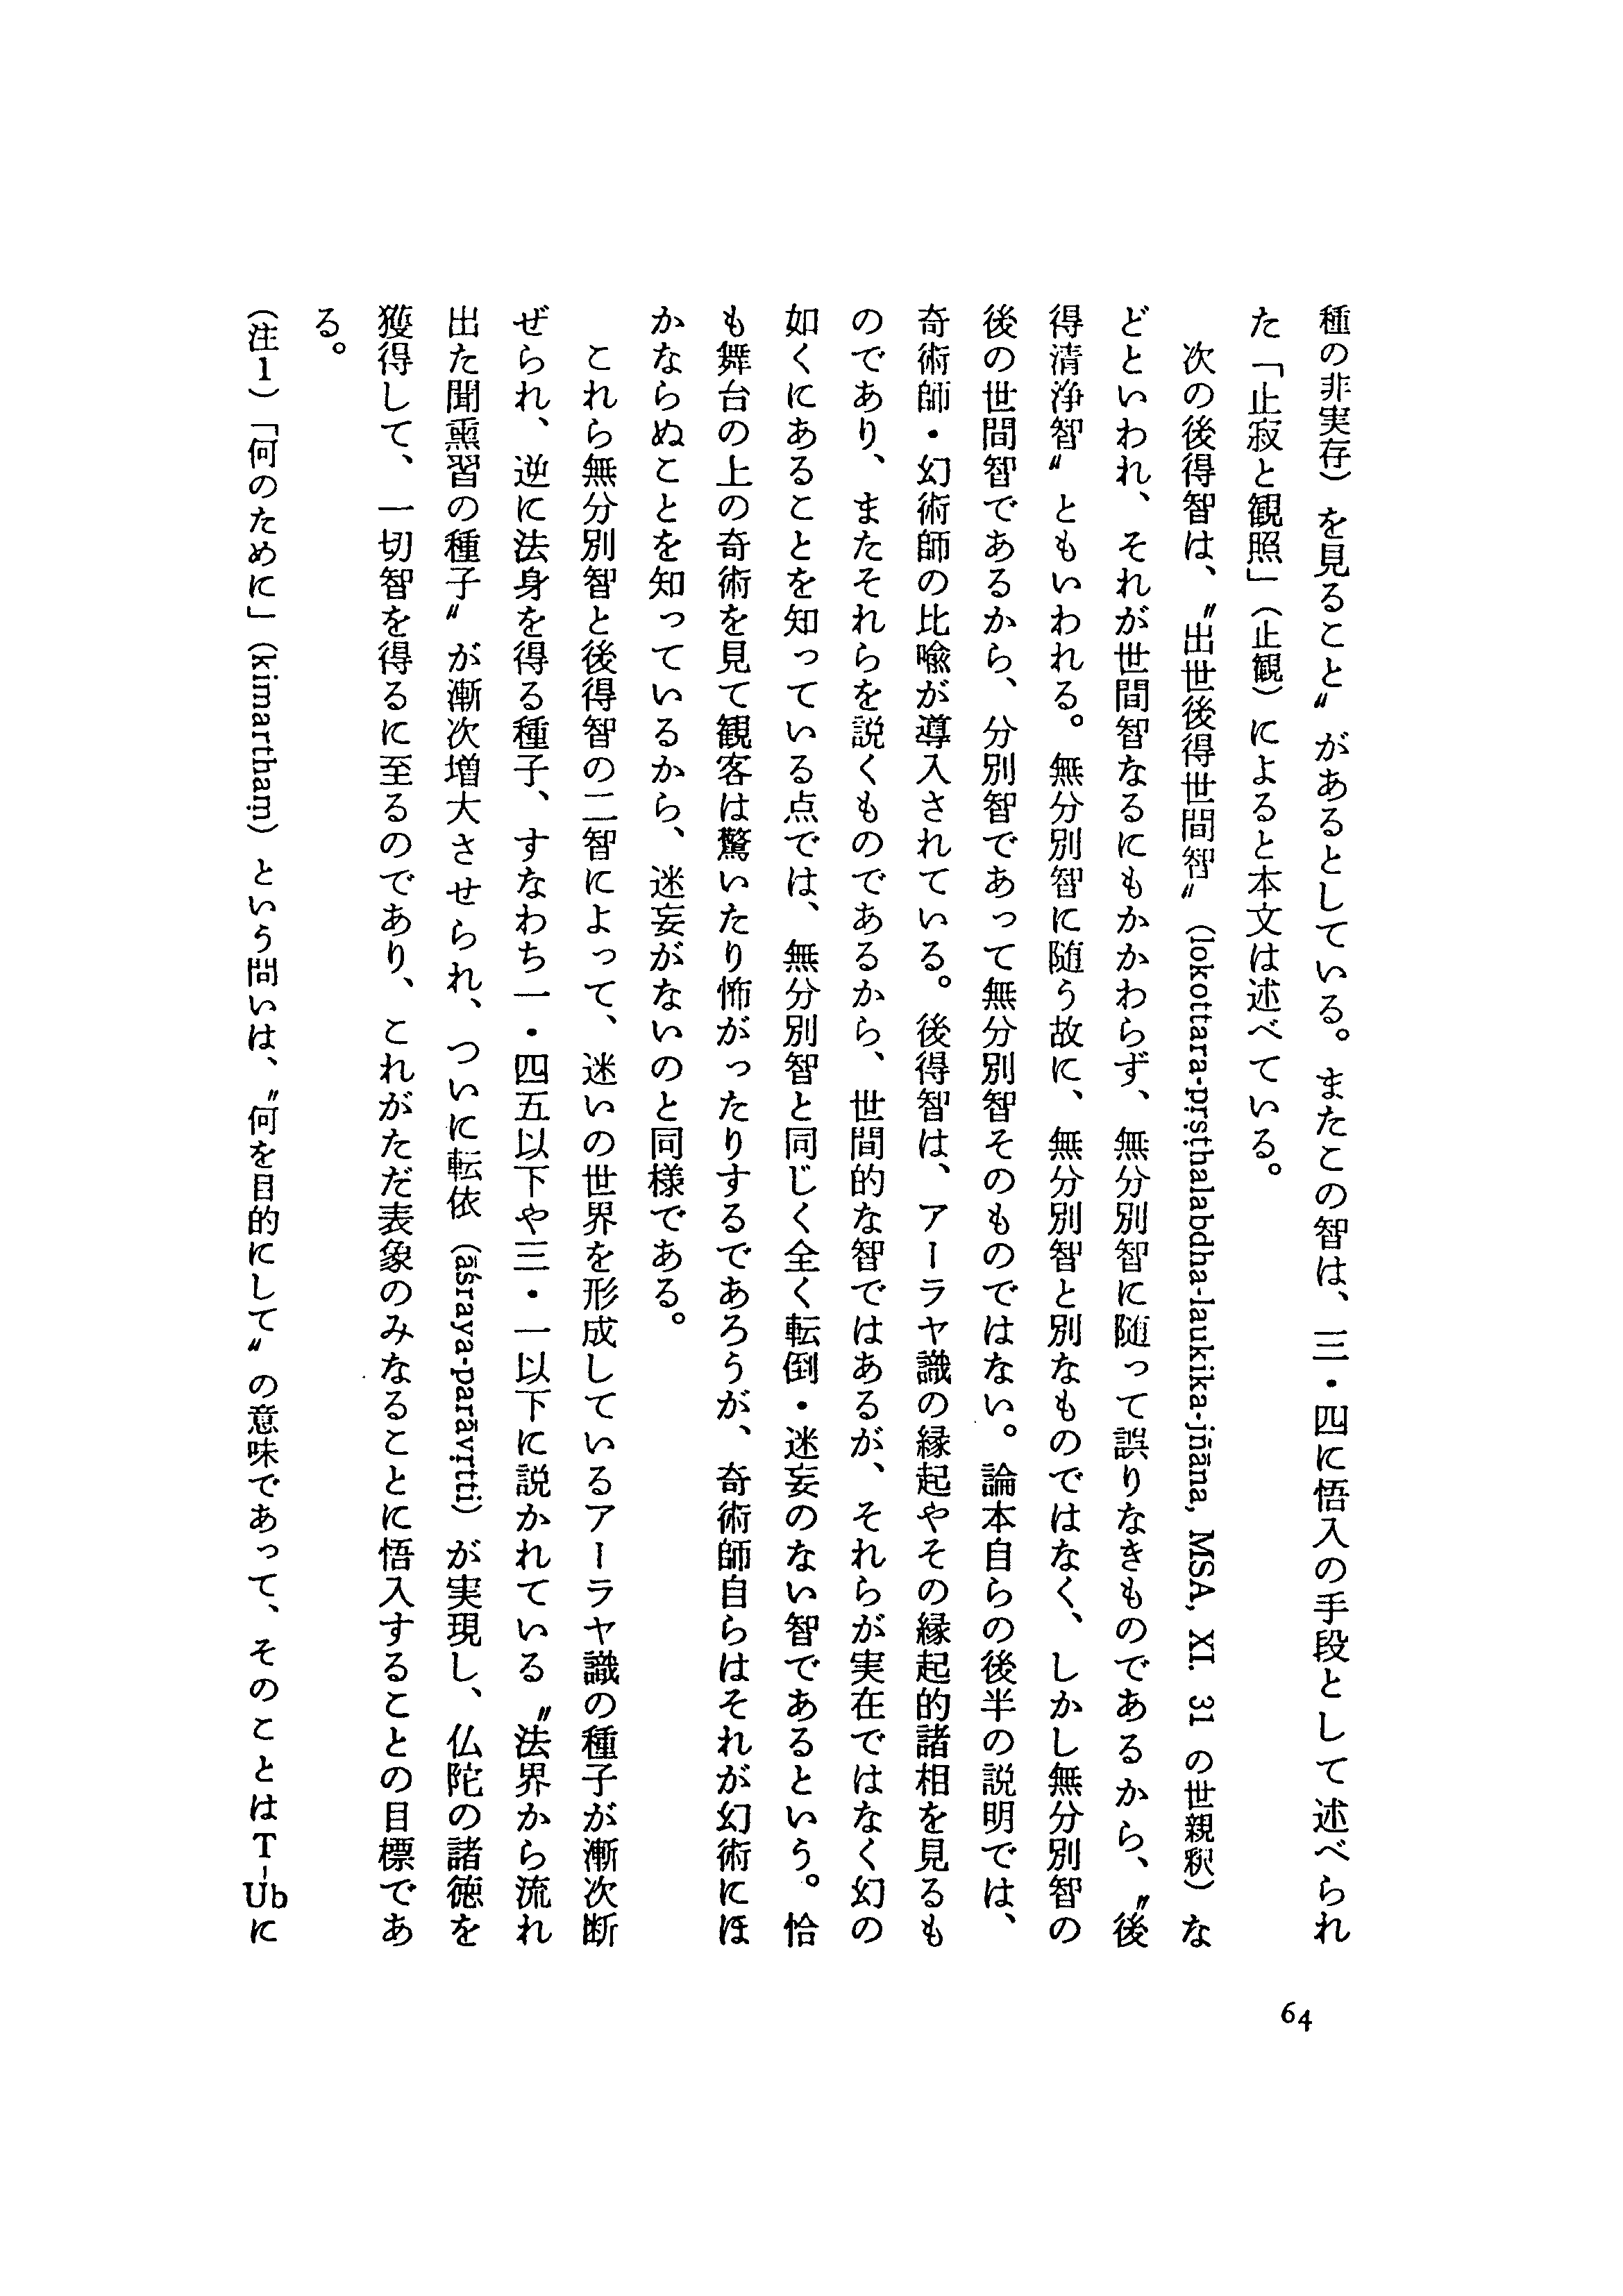 種の非実存）を見ること〟があるとしている。またこの智は、三・四に悟入の手段として述べられ
た「止寂と観照」（止観）によると本文は述べている。
次の後得智は、〝出世後得世間智〟（lokottara-pṛṣṭhalabdha-laukika-jñāna, MSA, XI. 31 の世親釈）な
どといわれ、それが世間智なるにもかかわらず、無分別智に随って誤りなきものであるから、〝後
得清浄智〟ともいわれる。無分別智に随う故に、無分別智と別なものではなく、しかし無分別智の
後の世間智であるから、分別智であって無分別智そのものではない。論本自らの後半の説明では、
奇術師・幻術師の比喩が導入されている。後得智は、アーラヤ識の縁起やその縁起的諸相を見るも
のであり、またそれらを説くものであるから、世間的な智ではあるが、それらが実在ではなく幻の
如くにあることを知っている点では、無分別智と同じく全く転倒・迷妄のない智であるという。恰
も舞台の上の奇術を見て観客は驚いたり怖がったりするであろうが、奇術師自らはそれが幻術にほ
かならぬことを知っているから、迷妄がないのと同様である。
これら無分別智と後得智の二智によって、迷いの世界を形成しているアーラヤ識の種子が漸次断
ぜられ、逆に法身を得る種子、すなわち一・四五以下や三・一以下に説かれている〝法界から流れ
出た聞熏習の種子〟が漸次増大させられ、ついに転依（āśraya-parāvṛtti）が実現し、仏陀の諸徳を
獲得して、一切智を得るに至るのであり、これがただ表象のみなることに悟入することの目標であ
る。
（注1）「何のために」（kimarthaṃ）という問いは、〝何を目的にして〟の意味であって、そのことはT-Ubに
64